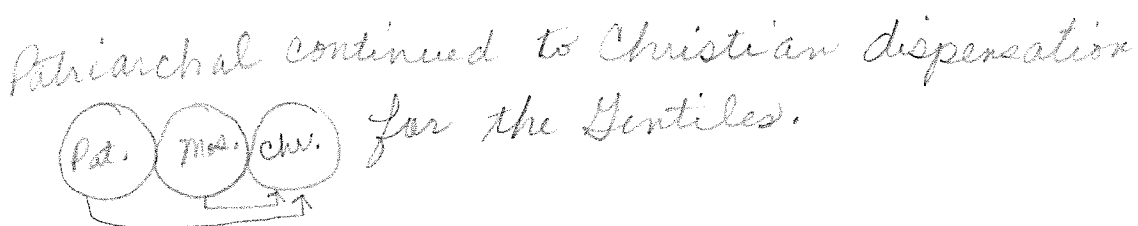 Patriarchal continued to Christian dispensation
for the Gentiles.
Pat. Mos. Chr.